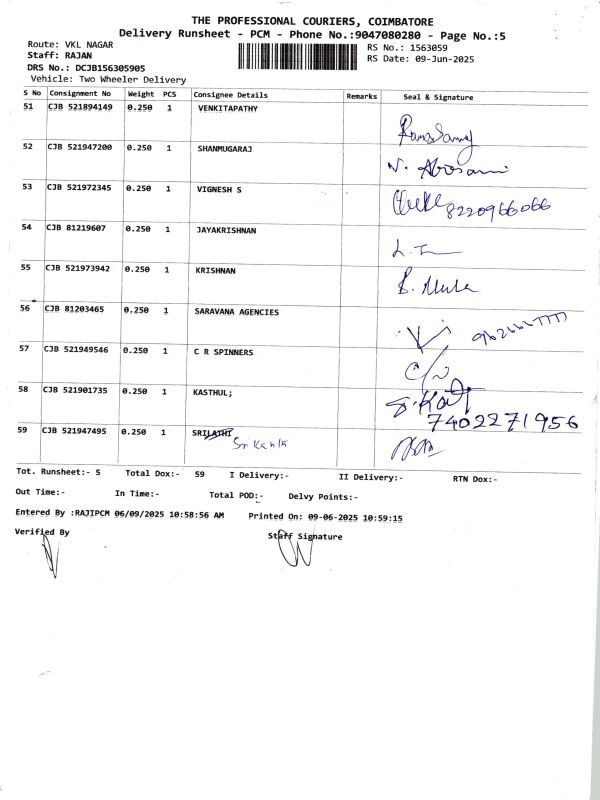 THE PROFESSIONAL COURIERS, COIMBATORE
Delivery Runsheet - PCM - Phone No.:9047080280 - Page No.:5
Route: VKL NAGAR
RS No.: 1563059
Staff: RAJAN
RS Date: 09-Jun-2025
DRS No.: DCJB156305905
Vehicle: Two Wheeler Delivery
S No Consignment No Weight PCS Consignee Details Remarks Seal & Signature
51 CJB 521894149 0.250 1 VENKITAPATHY
52 CJB 521947200 0.250 1 SHANMUGARAJ
53 CJB 521972345 0.250 1 VIGNESH S 8220966066
54 CJB 81219607 0.250 1 JAYAKRISHNAN
55 CJB 521973942 0.250 1 KRISHNAN
56 CJB 81203465 0.250 1 SARAVANA AGENCIES
57 CJB 521949546 0.250 1 C R SPINNERS
58 CJB 521901735 0.250 1 KASTHUL;
7402271956
59 CJB 521947495 0.250 1 SRILATHI
Tot. Runsheet:- 5 Total Dox:- 59 I Delivery:- II Delivery:- RTN Dox:-
Out Time:- In Time:- Total POD:- Delvy Points:-
Entered By :RAJIPCM 06/09/2025 10:58:56 AM Printed On: 09-06-2025 10:59:15
Verified By Staff Signature